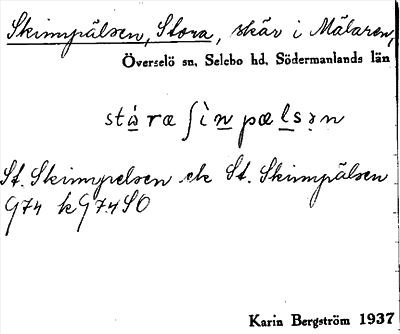 Skinnpälsen, Stora, skär i Mälaren,
Överselö sn, Selebo hd, Södermanlands län
St. Skinnpelsen ek St. Skinnpälsen
G74 k G74SO
Karin Bergström 1937